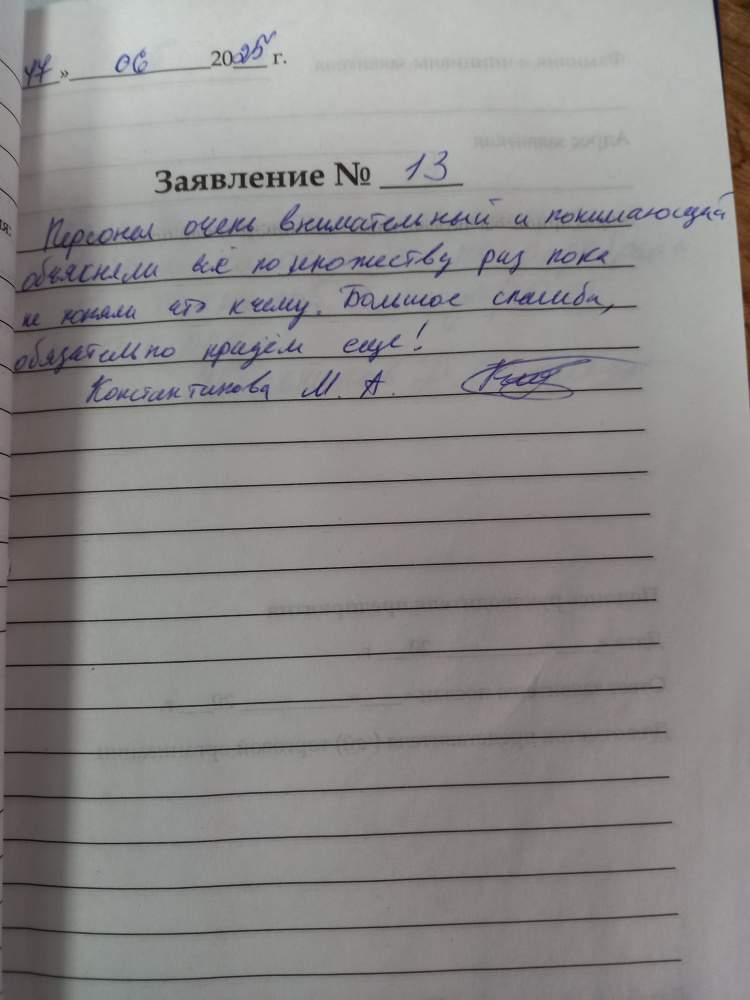 17 » 06 2025 г.
Заявление № 13
Персонал очень внимательный и понимающий
объясняли всё по множеству раз пока
не поняли что к чему. Большое спасибо,
обязательно придём еще!
Константинова М. А.